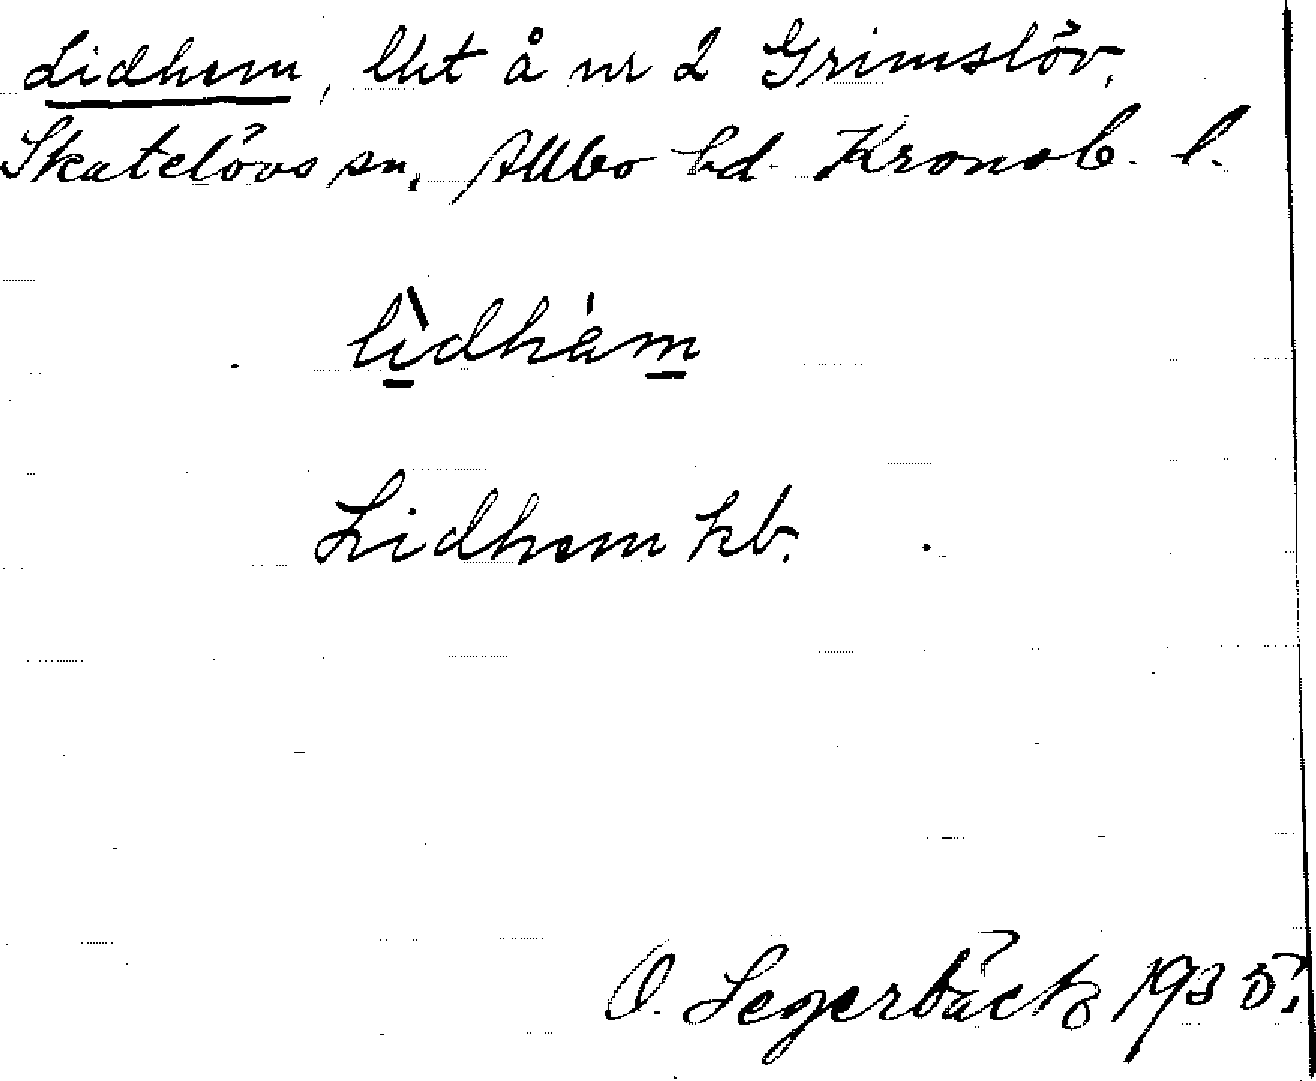 Lidhem, lht å nr 2 Grimslöv,
Skatelövs sn, Allbo hd. Kronob. l.
lìdhám
Lidhem kb.
O. Segerbäck 1935.